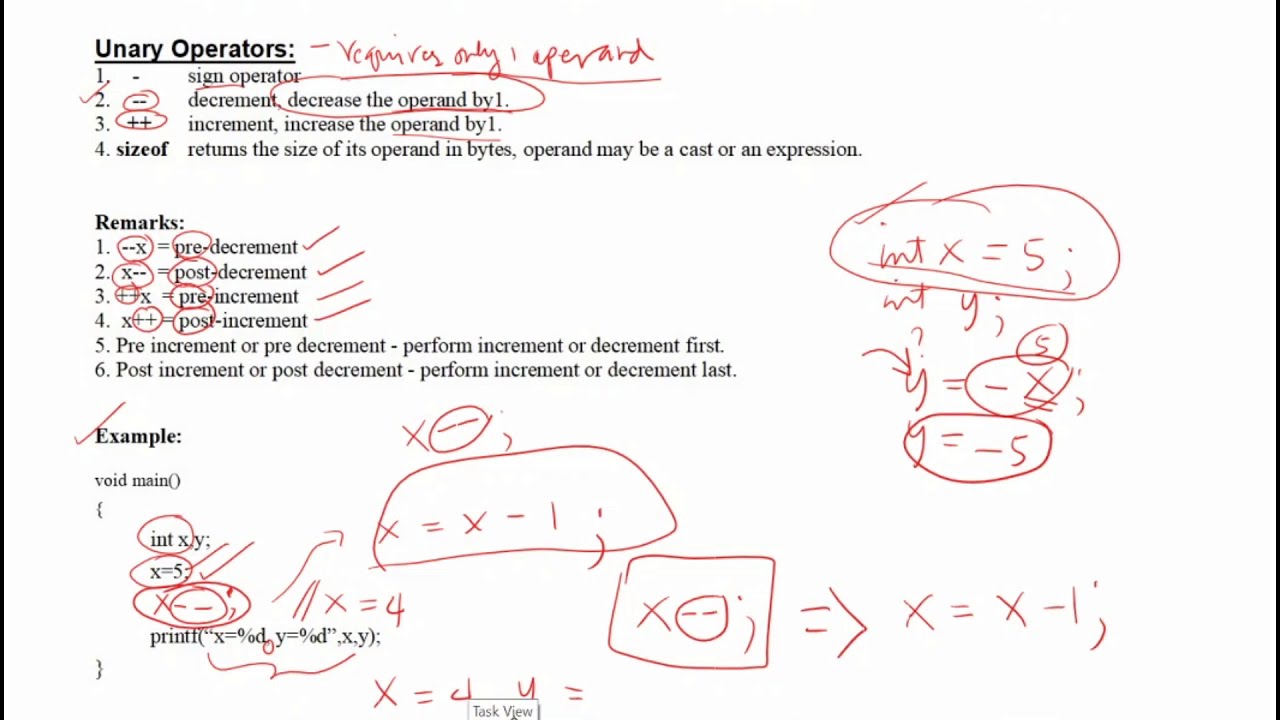 Unary Operators: - requires only 1 operand
1. - sign operator
2. -- decrement, decrease the operand by1.
3. ++ increment, increase the operand by1.
4. sizeof returns the size of its operand in bytes, operand may be a cast or an expression.
Remarks:
1. --x = pre-decrement
2. x-- = post-decrement
3. ++x = pre-increment
4. x++ = post-increment
5. Pre increment or pre decrement - perform increment or decrement first.
6. Post increment or post decrement - perform increment or decrement last.
int x = 5;
int y;
?
5
y = - x;
y = -5
Example:
x--;
void main()
{
x = x - 1;
int x,y;
x=5;
x--; //x = 4
printf("x=%d,y=%d",x,y);
}
x--; => x = x - 1;
x = 4 y =
Task View